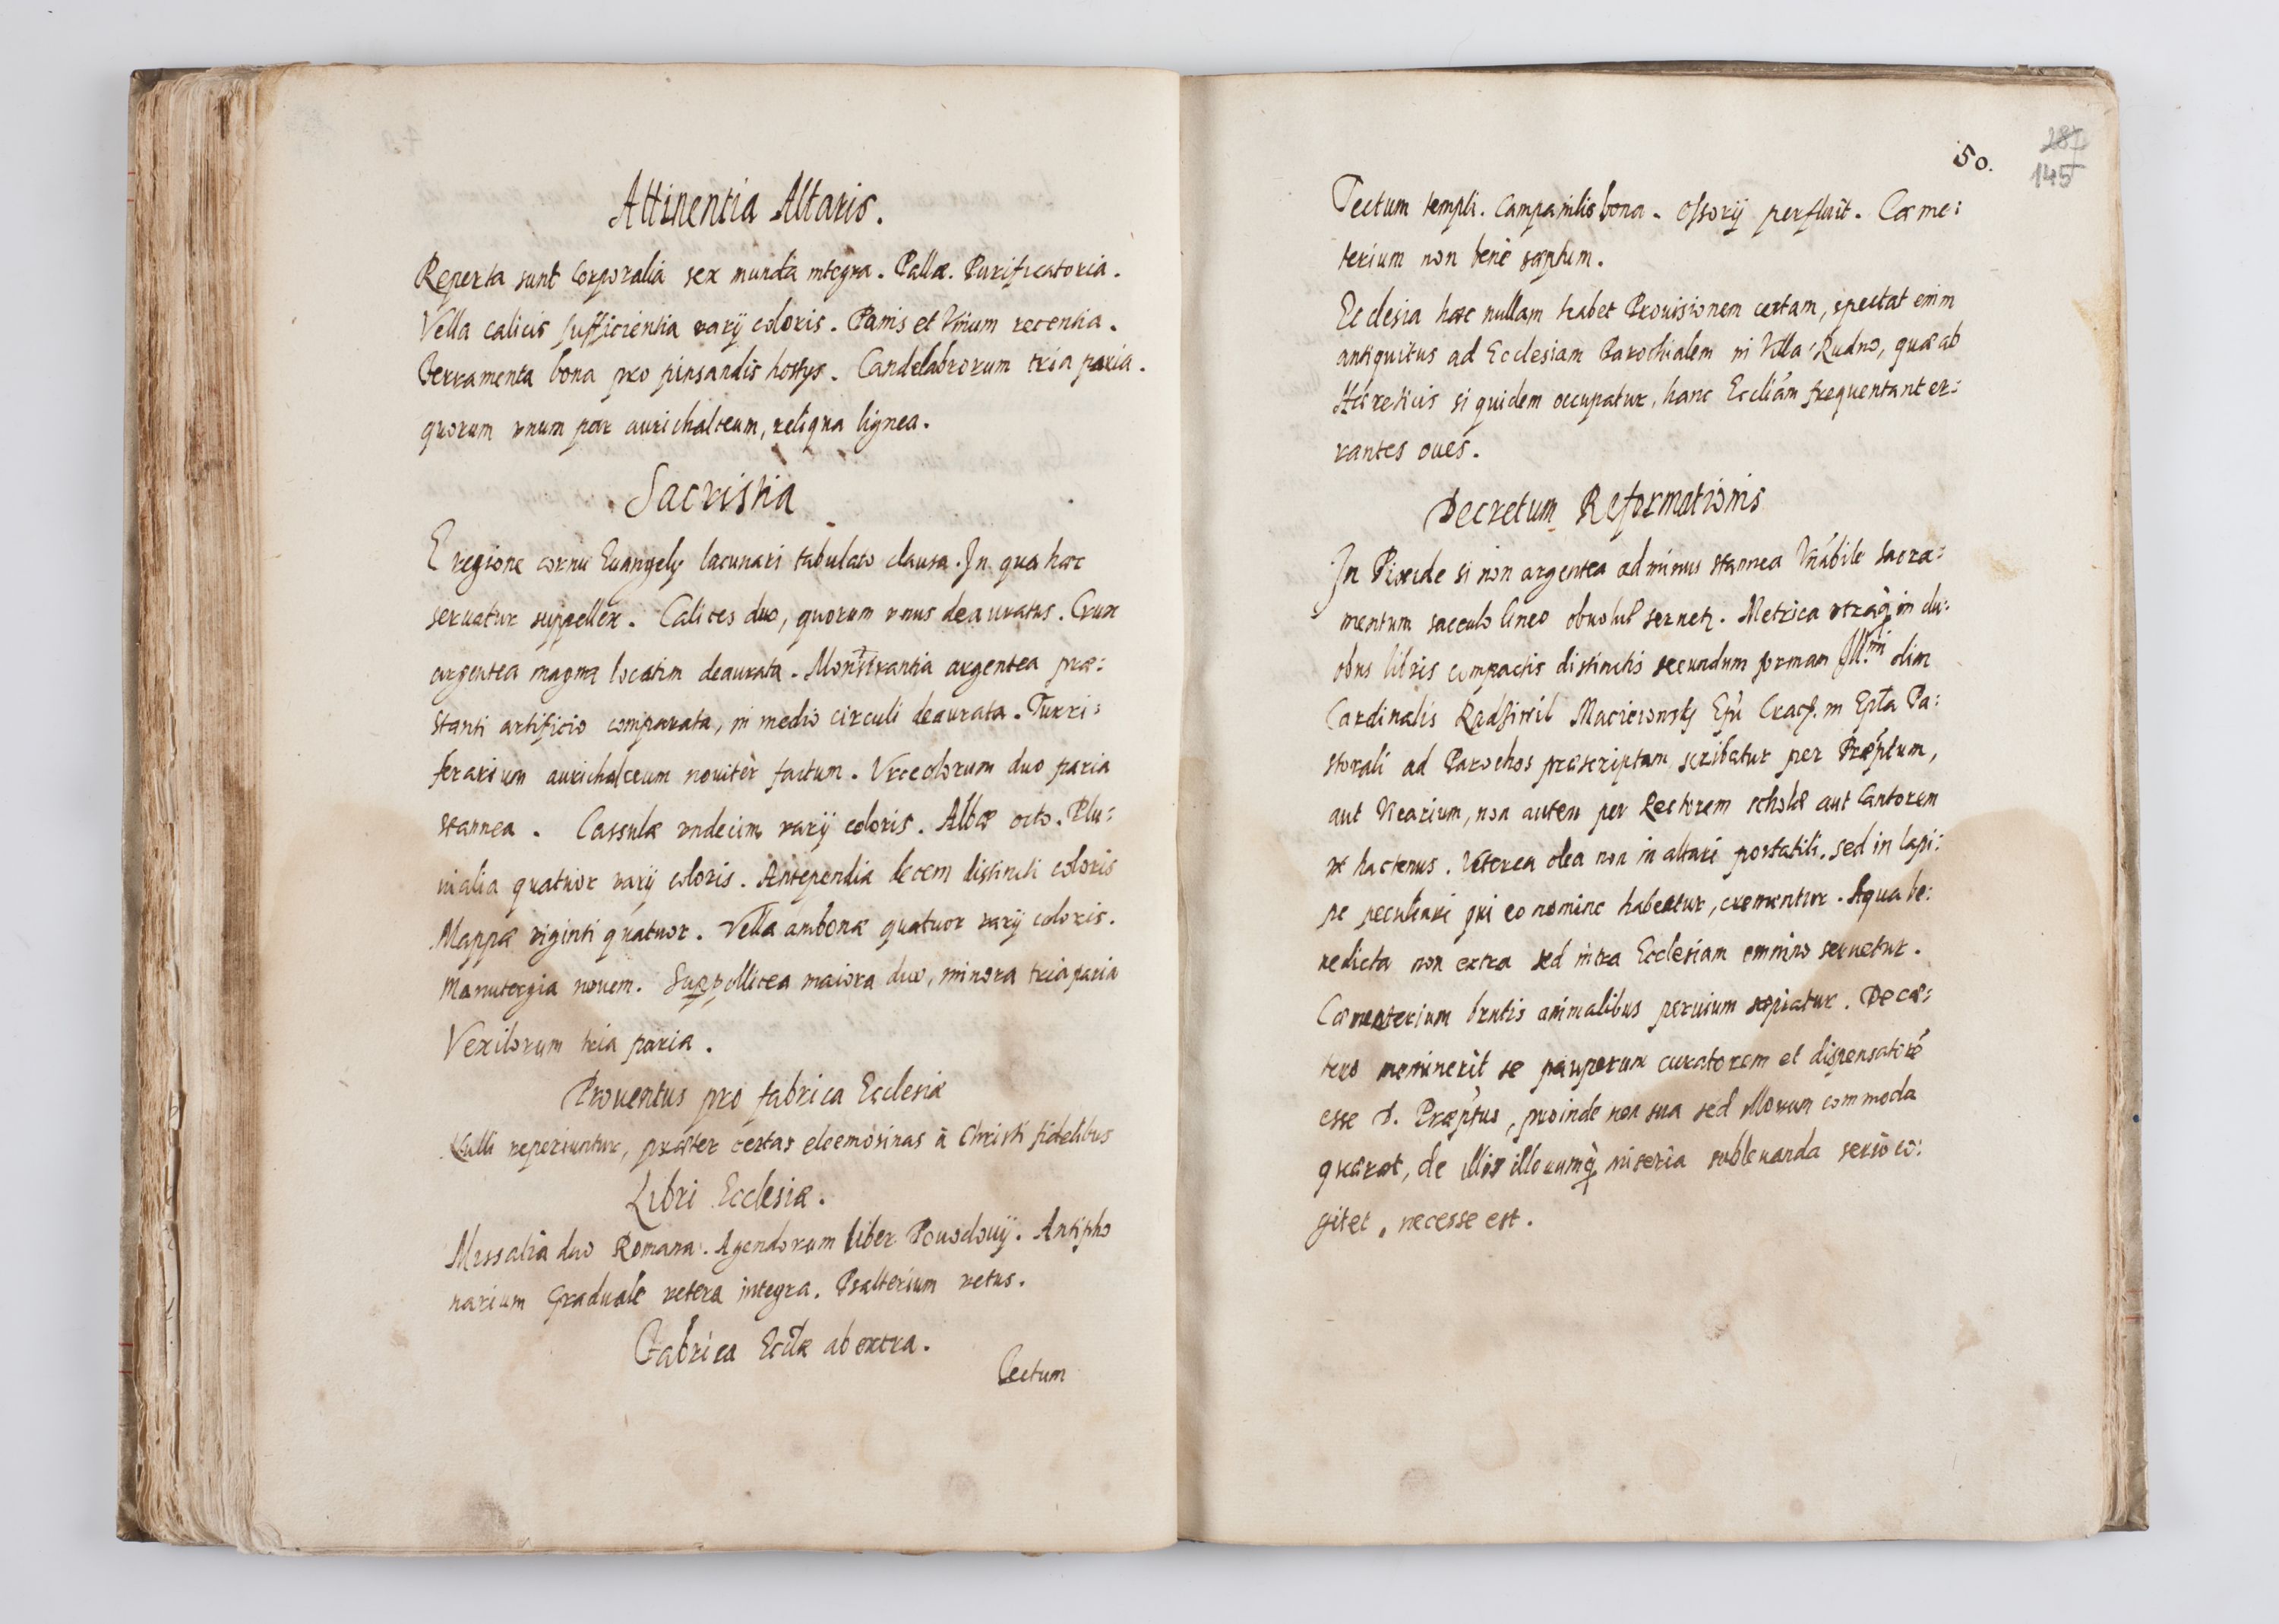 Attinentia Altaris.
Reperta sunt Corporalia sex munda integra. Pallæ. Purificatoria.
Vella calicis sufficientia varij coloris. Panis et Vinum recentia.
Ferramenta bona pro pinsandis hostys. Candelabrorum tria paria.
quorum vnum par aurichalceum, reliqua lignea.
Sacristia
E regione cornu Euangely lacunari tabulato clausa. In qua hæc
seruatur suppellex. Calices duo, quorum vnus deauratus. Crux
argentea magna locatim deaurata. Monstrantia argentea præ:
stanti artificio comparata, in medio circuli deaurata. Turri:
ferarium aurichalceum nouitèr factum. Vrceolorum duo paria
stannea. Cassulæ vndecim varij coloris. Albæ octo. Plu:
uialia quatuor varij coloris. Antependia decem distincti coloris
Mappæ viginti quatuor. Vella ambonæ quatuor varij coloris.
Manutergia nouem. Suppellicea maiora duo, minora tria paria
Vexilorum tria paria.
Prouentus pro fabrica Ecclesiæ
Nulli reperiuntur, præter certas eleemosinas à Christi fidelibus
Libri Ecclesiæ.
Missalia duo Romana. Agendorum liber Powodouij. Antipho
narium Graduale vetera integra. Psalterium vetus.
Fabrica Eccłæ ab extra.
Tectum
50.
287
145
Tectum templi. Campanilis bona. Ossorij perfluit. Cæme:
terium non benè sæptum.
Ecclesia hæc nullam habet Prouisionem certam, spectat enim
antiquitus ad Ecclesiam Parochialem in Villa Rudno, quæ ab
Hæreticis si quidem occupatur, hanc Eccliam frequentant er:
rantes oues.
Decretum Reformationis
In Pixide si non argentea ad minus stannea Vnábile Sacra:
mentum sacculo lineo obuolut seruetz. Metrica vtraq in du:
obus libris compactis distinctis secundum forman Illmi olim
Cardinalis Radziwil Macieiowsky Epũ Crac. in Epła Pa:
storali ad Parochos præscriptam, scribatur per Præptum,
aut Vicarium, non autem per Rectorem scholæ aut Cantorem
vt hactenus. Vetera olea non in altari portatili, sed in lapi:
de peculiari qui eo nomine habeatur, crementur. Aqua be:
nedicta non extra sed intra Ecclesiam omnino seruetur.
Cæmeterium brutis animalibus peruium sæpiatur. De cæ:
tero meminerit se pauperum curatorem et dispensatorẽ
esse D. Præptus, proinde non sua sed illorum commoda
quærat, de illis illorumq miseria subleuanda seriò co:
gitet, necesse est.